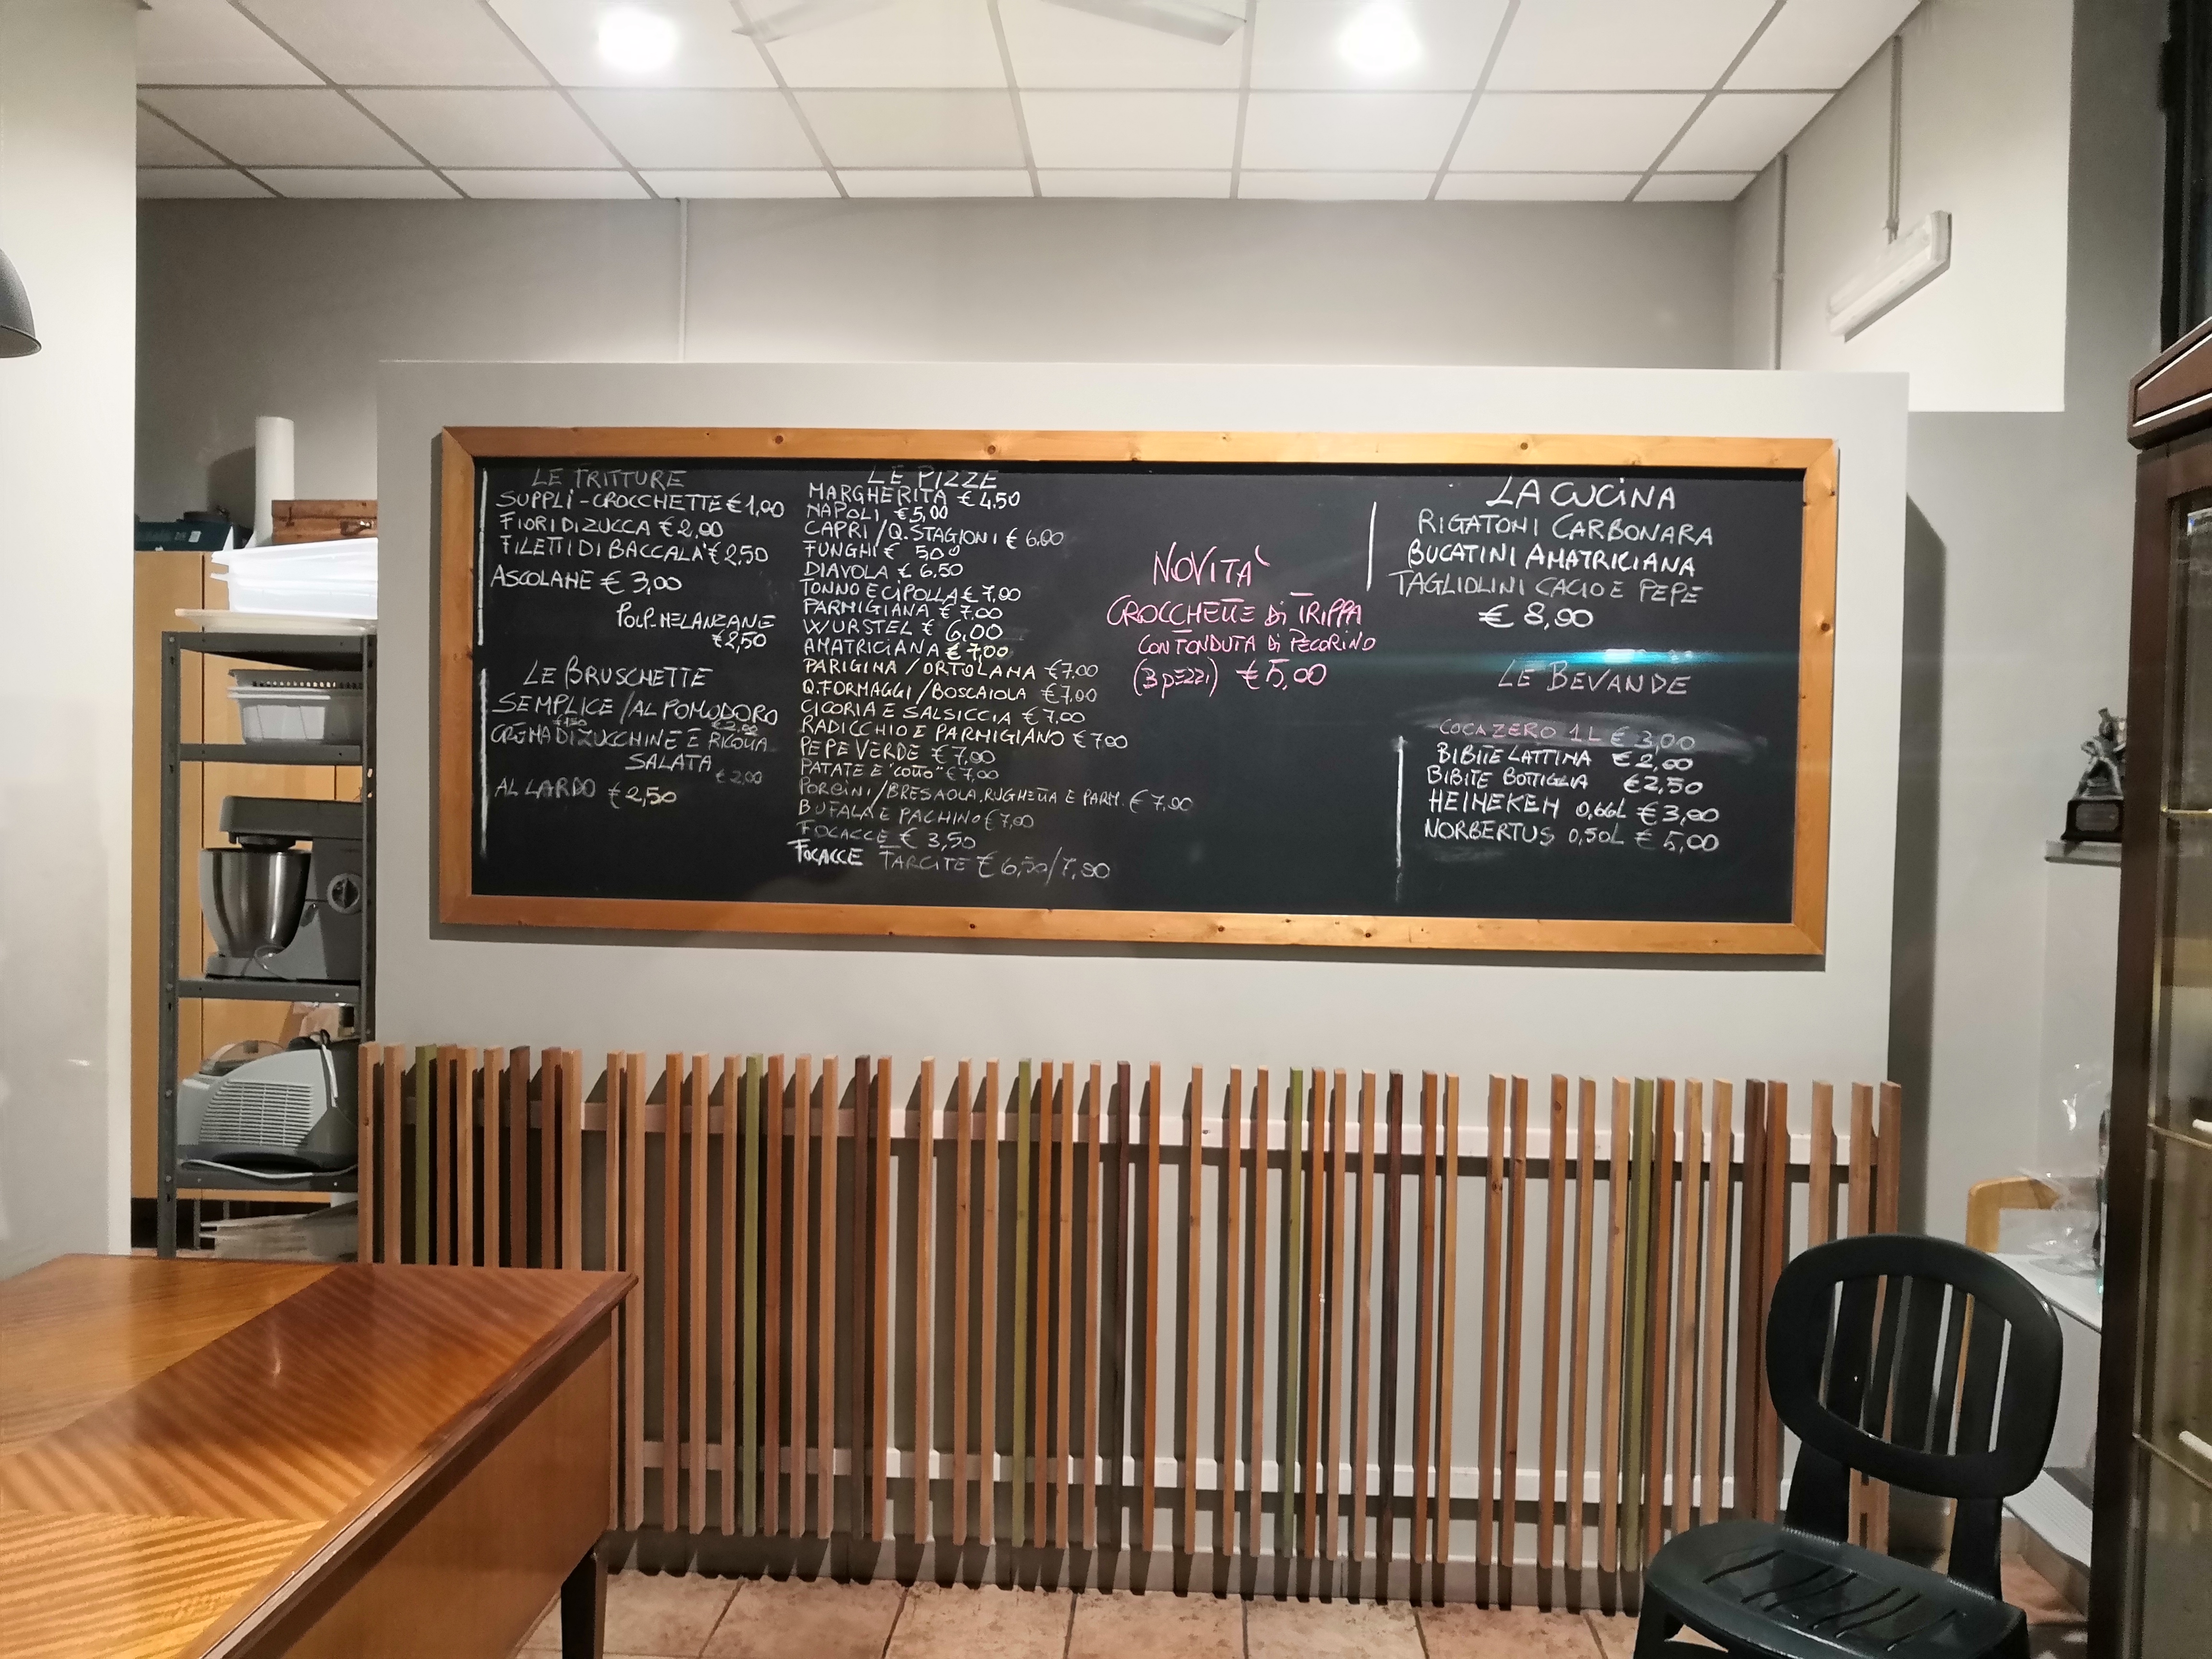 LE FRITTURE
SUPPLÌ - CROCCHETTE € 1,00
FIORI DI ZUCCA € 2,00
FILETTI DI BACCALA' € 2,50
ASCOLANE € 3,00
POLP. MELANZANE
€ 2,50
LE BRUSCHETTE
SEMPLICE / AL POMODORO
€ 1,50 € 2,00
CREMA DI ZUCCHINE E RICOTTA
SALATA € 2,00
AL LARDO € 2,50
LE PIZZE
MARGHERITA € 4,50
NAPOLI € 5,00
CAPRI / Q. STAGIONI € 6,00
FUNGHI € 500
DIAVOLA € 6,50
TONNO E CIPOLLA € 7,00
PARMIGIANA € 7,00
WURSTEL € 6,00
AMATRICIANA € 7,00
PARIGINA / ORTOLANA € 7,00
Q. FORMAGGI / BOSCAIOLA € 7,00
CICORIA E SALSICCIA € 7,00
RADICCHIO E PARMIGIANO € 7,00
PEPE VERDE € 7,00
PATATE E "COTTO" € 7,00
PORCINI / BRESAOLA, RUGHETTA E PARM. € 7,90
BUFALA E PACHINO € 7,00
FOCACCE € 3,50
FOCACCE FARCITE € 6,50/7,90
NOVITA'
CROCCHETTE Di TRIPPA
CON FONDUTA Di PECORINO
(3 pezzi) € 5,00
LA CUCINA
RIGATONI CARBONARA
BUCATINI AMATRICIANA
TAGLIOLINI CACIO E PEPE
€ 8,90
LE BEVANDE
COCA ZERO 1 L € 3,00
BIBITE LATTINA € 2,00
BIBITE BOTTIGLIA € 2,50
HEINEKEN 0,66L € 3,00
NORBERTUS 0,50L € 5,00